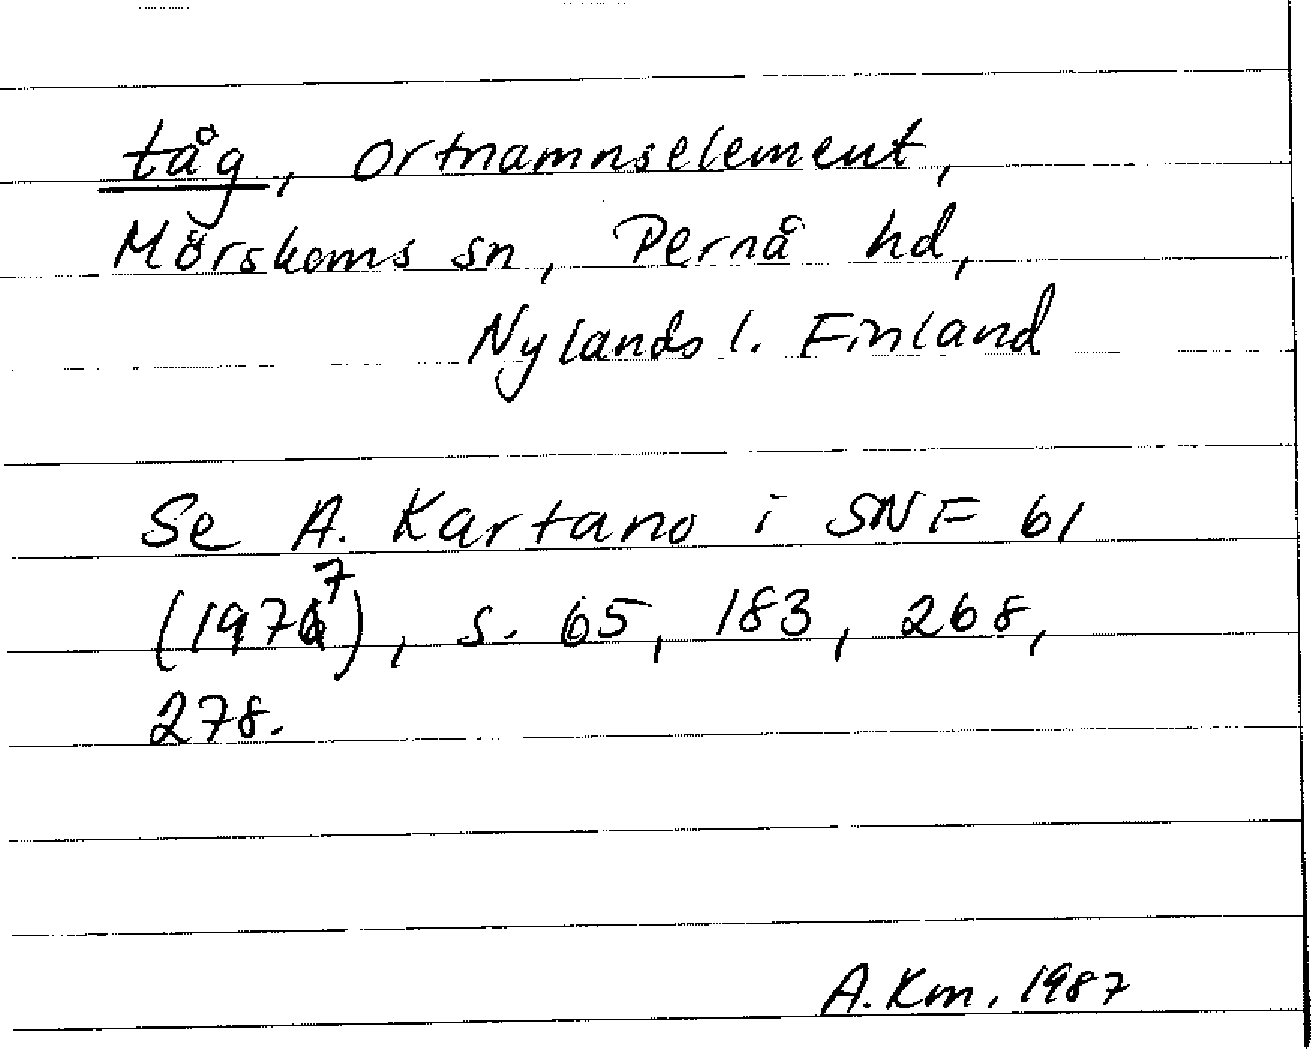 tåg, ortnamnselement,
Mörskoms sn, Pernå hd,
Nylands l. Finland
Se A. Kartano i SNF 61
(1977), s. 65, 183, 268,
278.
A.Km. 1987